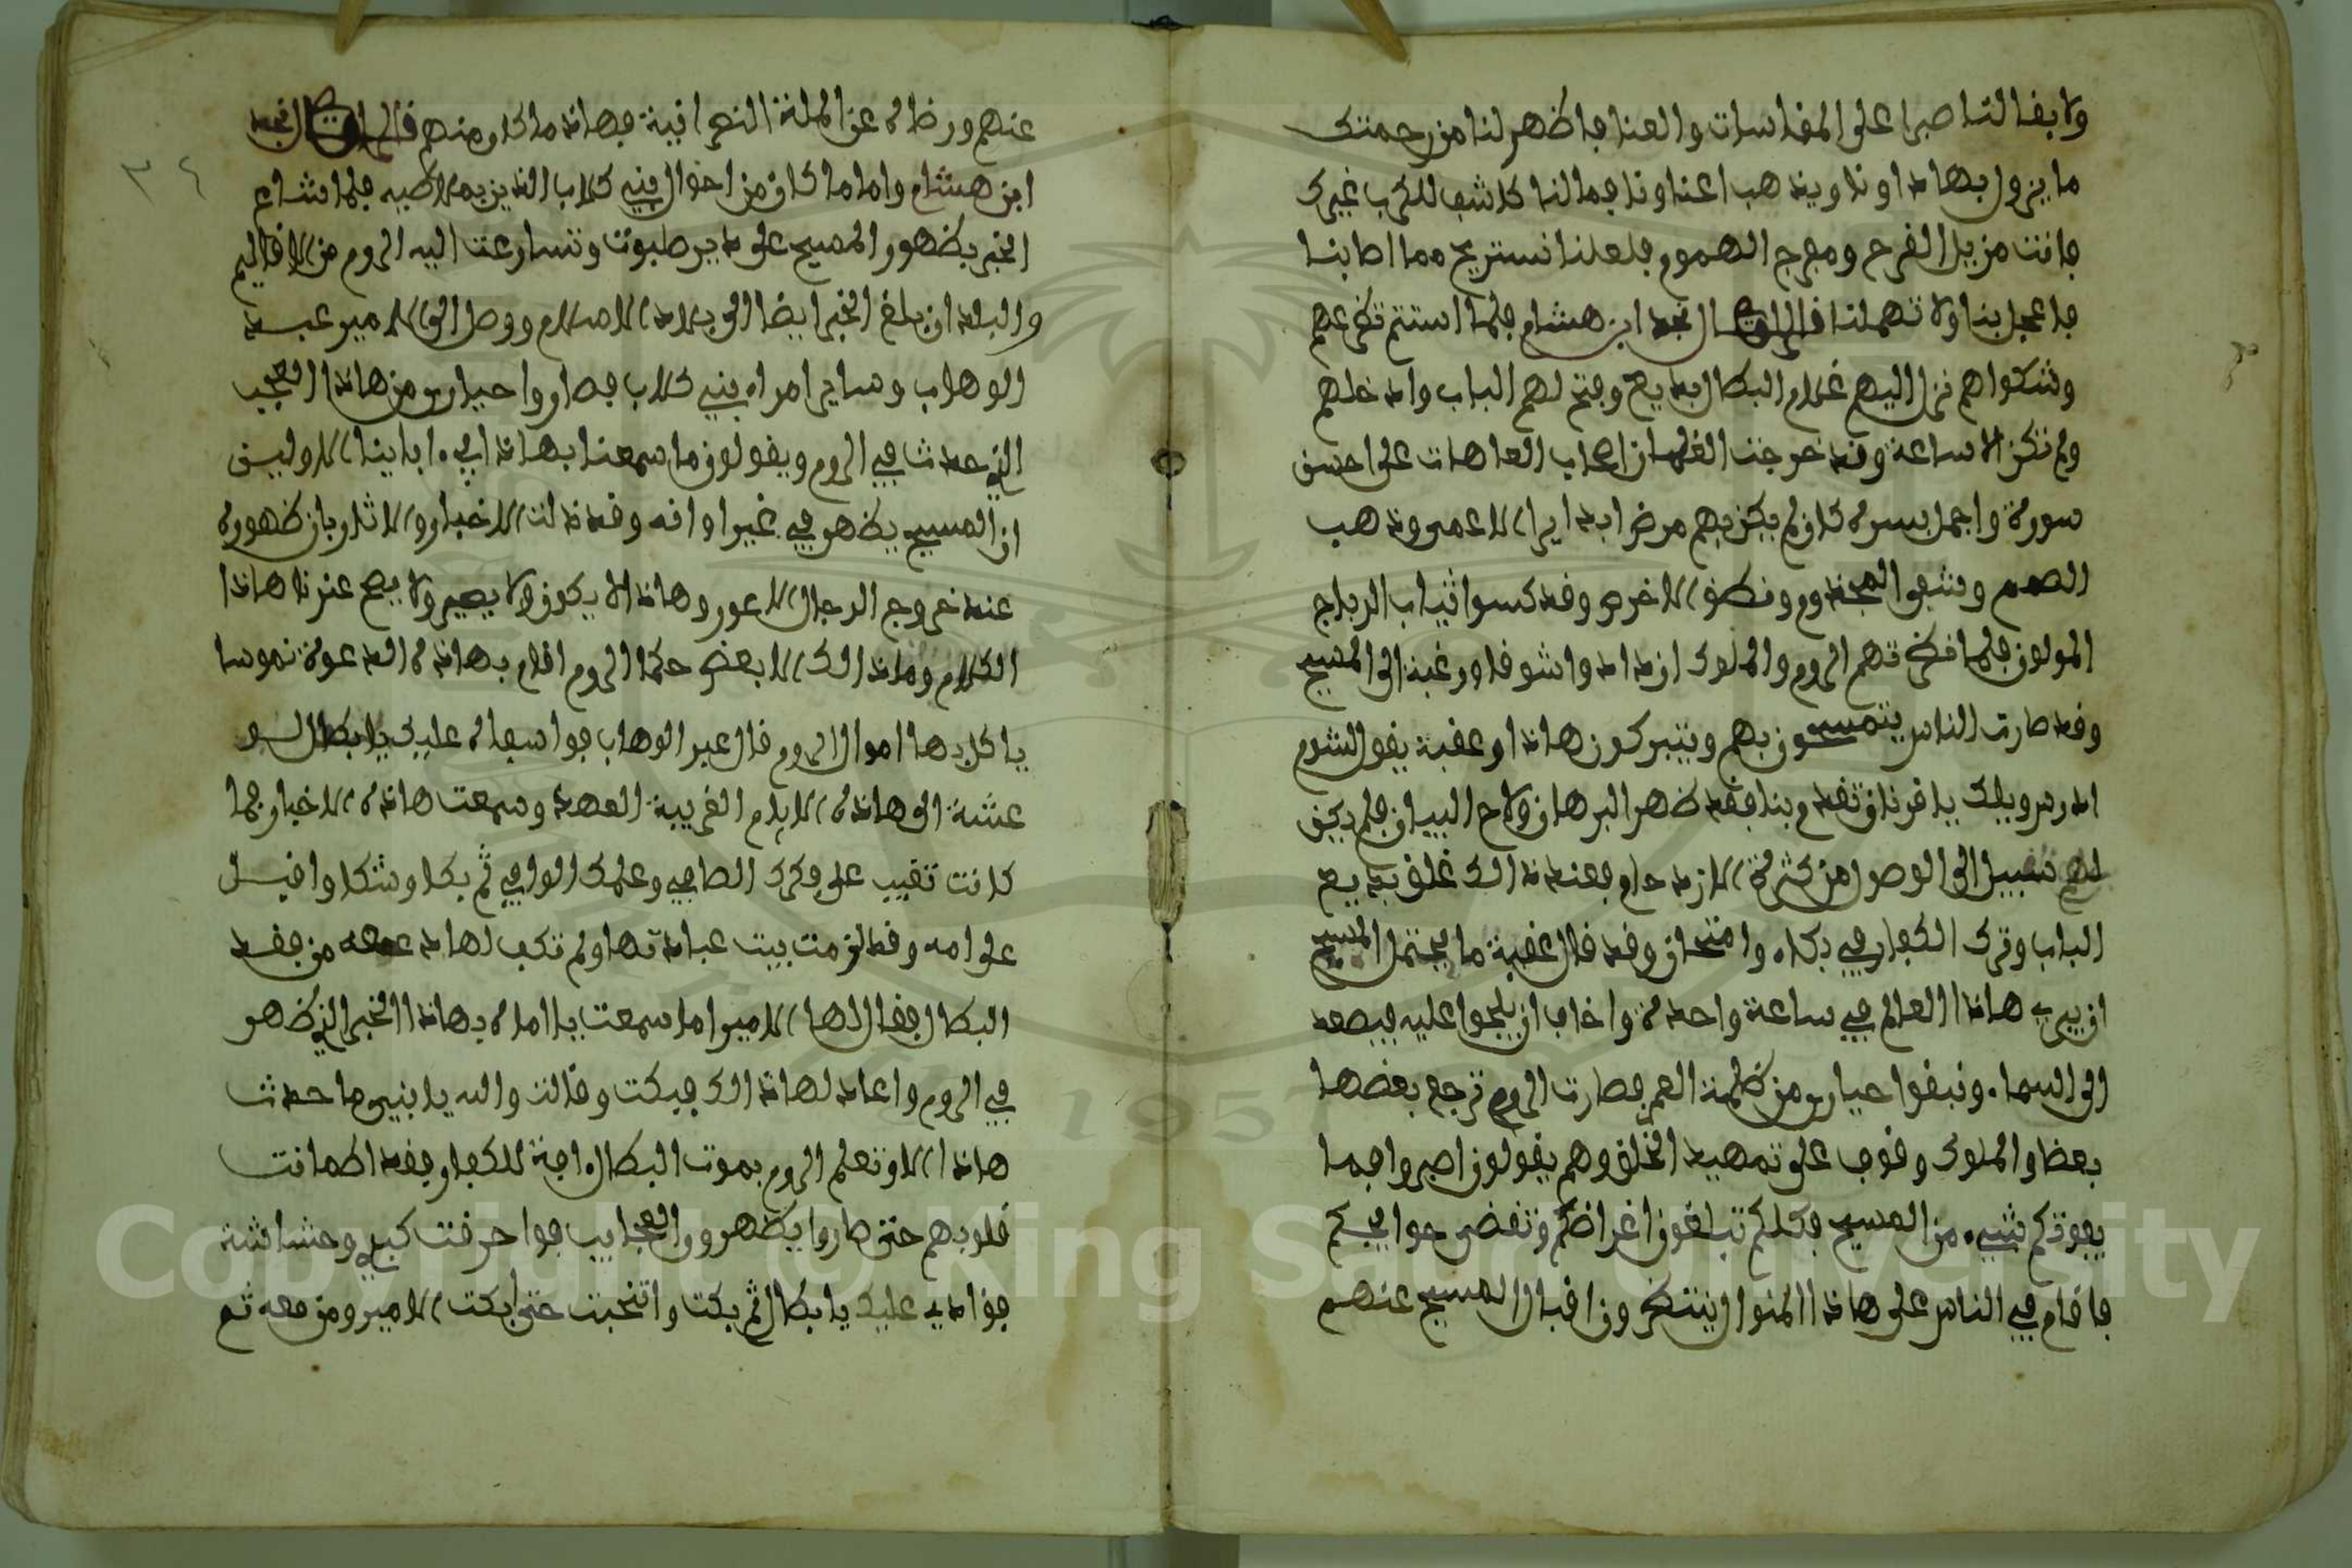 ولا بقا لنا صبرا على المقاسات والعنا فاظهر لنا من رحمتك
ما يزول بهاذا وناويذهب اعناونا فما لنا كاشف للكرب غيرك
فانت مزيل الفرح ومفرج الهموم فلعلنا نستريح مما اصابنا
فاعجل بنا ولا تهملنا قال الراوي نجد ابن هشام فلما استتم تضرعهم
وشكواهم نزل اليهم غلام البطال بديع وفتح لهم الباب وادخلهم
ولم تكن الا ساعة وقد خرجت الغلمان اصحاب العاهات على احسن
سورة واجمل بسرة كان لم يكن بهم مرض ابدا يرا الاعمى وذهب
الصمم وشفى المجذوم ونطق الاخرس وقد كسوا ثياب الرباج
المولون فلما نظرتهم الروم والملوك ازدادوا شوقا ورغبة الى المسيح
وقد صارت الناس يتمسحون بهم ويتبركون هاذا وعقبة يقول لشوم
ادرس ويلك يا قرنان تقدم بنا فقد ظهر البرهان ولاح البيان فلم يكن
لهم سبيل الى الوصول من كثرة الازدحام فعند ذالك غلق بديع
الباب وترك الكفار في بكاء وامتحان وقد قال عقبة ما يحتمل المسيح
ان يبري هاذا العالم في ساعة واحدة واخاف ان يلجوا عليه فيصعد
الى السماء ونبقوا حيارى من ظلمة العم فصارت الروم ترجع بعضها
بعضا والملوك وقوف على تمهيد الخلق وهم يقولون اصبروا فما
يفوتكم شيء من المسيح فكلكم تبلغون اغراضكم وتقضى حوايجكم
فاقام في الناس على هاذا المنوال ينتظرون اقبال المسيح عنهم
عنهم ورضاه عن الملة النصرانية فهاذا ما كان منهم قال الراوي نجد
ابن هشام واما ما كان من احوال بني كلاب الذين بملاطيه فلما شاع
الخبر بظهور المسيح على دير طبوت وتسارعت اليه الروم من الاقاليم
والبلدان بلغ الخبر ايضا الى بلاد الاسلام ووصل الى الامير عبد
الوهاب وساير امراء بني كلاب فصاروا حيارى من هاذا العجب
الذي حدث في الروم ويقولون ما سمعنا بهاذا في اباينا الاولين
ان المسيح يظهر في غير اوانه وقد دلت الاخبار والاثار بان ظهوره
عند خروج الدجال الاعور وهاذا لا يكون ولا يصير ولا يصح عندنا هاذا
الكلام وما ذالك الا بعض حكما الروم اقام بهاذه الدعوة نموسا
ياكل بها اموال الروم قال عبد الوهاب فوا سفاه عليك يا بطال لو
عشة الى هاذه الايام القريبة العهد وسمعت هاذه الاخبار فما
كانت تغيب على فكرك الصافي وعلمك الوافي ثم بكا وشكا واقبل
على امه وقد لزمت بيت عبادتها ولم تكف لها دمعه من فقد
البطال فقال لها الامير اما سمعت يا اماه بهاذا الخبر الذي ظهر
في الروم واعاد لها ذالك فبكت وقالت والله يا بني ما حدث
هاذا الا وتعلم الروم بموت البطال افة الكفار فقد اطمانت
قلوبهم حتى صاروا يظهرون العجايب فوا حرقت كبدي وحشاشة
فؤادي عليك يا بطال ثم بكت وانتحبت حتى ابكت الامير ومن معه ثم
٣٤
Copyright © King Saud University
1957